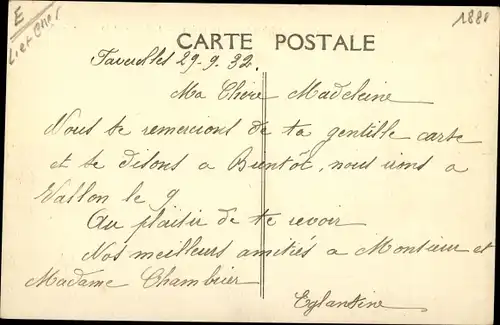 E
Loir Cher
1880
CARTE POSTALE
29-9.32.
Ma Chère Madeleine
Nous te remercions de ta gentille carte
et te disons a Bientôt, nous irons a
Vallon le 9
Au plaisir de te revoir
Nos meilleurs amitiés a Monsieur et
Madame Chambrier
Eglantine